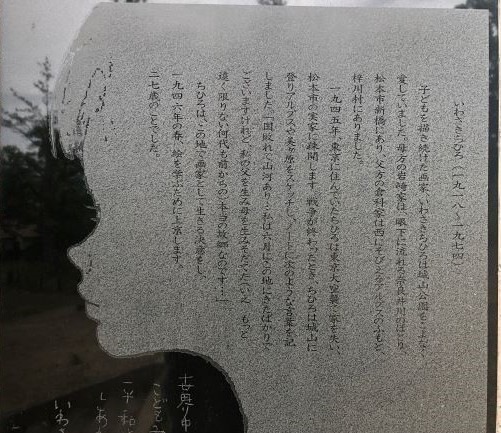 いわさきちひろ（一九一八～一九七四）
子どもを描き続けた画家いわさきちひろは城山公園をこよなく
愛していました。母方の岩崎家は眼下に流れる奈良井川のほとり、
松本市新橋にあり、父方の倉科家は西にそびえるアルプスのふもと、
梓川村にありました。
一九四五年、東京に住んでいたちひろは東京大空襲で家を失い、
松本市の実家に疎開します。戦争が終わったとき、ちひろは城山に
登りアルプスや美ヶ原をスケッチし、ノートに次のような言葉を記
しました。「国破れて山河あり…私は六月にこの地にきたばかりで
ございますけれど、私の父を生み母を生みまた
遠く限りない何代も前からの本当の故郷なのです…」
ちひろは、この地で画家として生きる決意をし、
一九四六年の春、絵を学ぶために上京します。
二七歳のことでした。
世界中
こども
平和と
しあ
いわさ